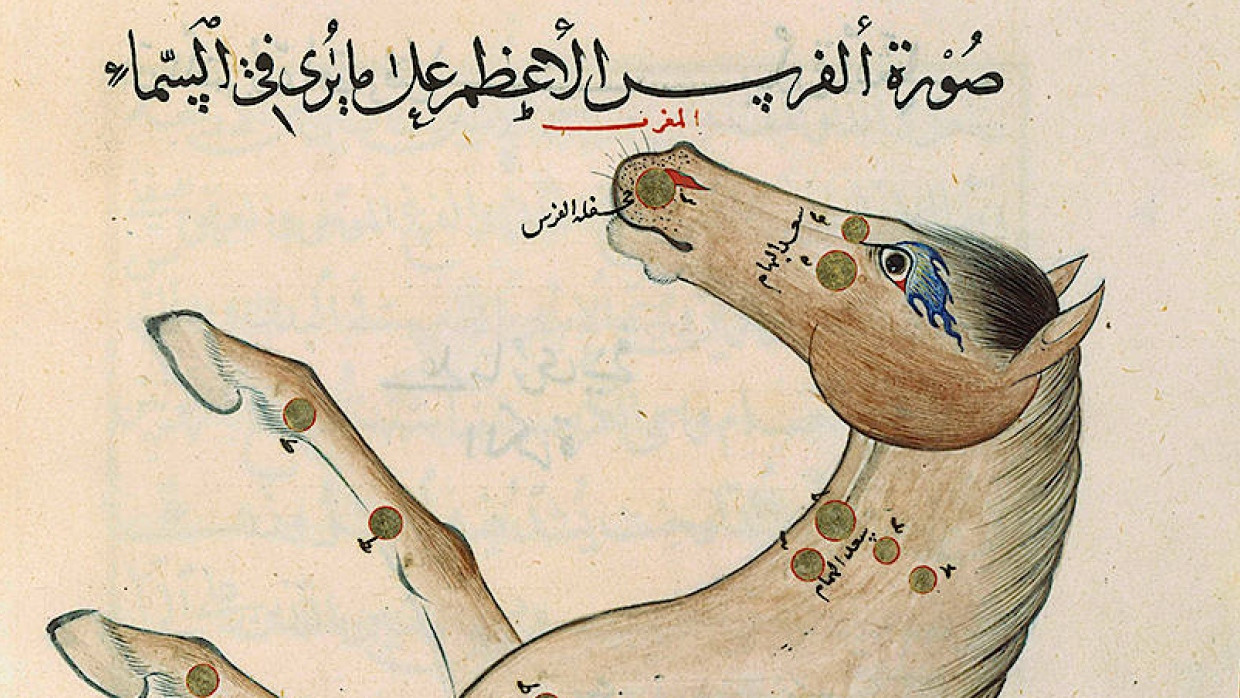 صُوْرة ألفرس الأعظم على ما يُرى في السّماء
المغرب
جحفلة الفرس
سعد البهام
سعد الهمام